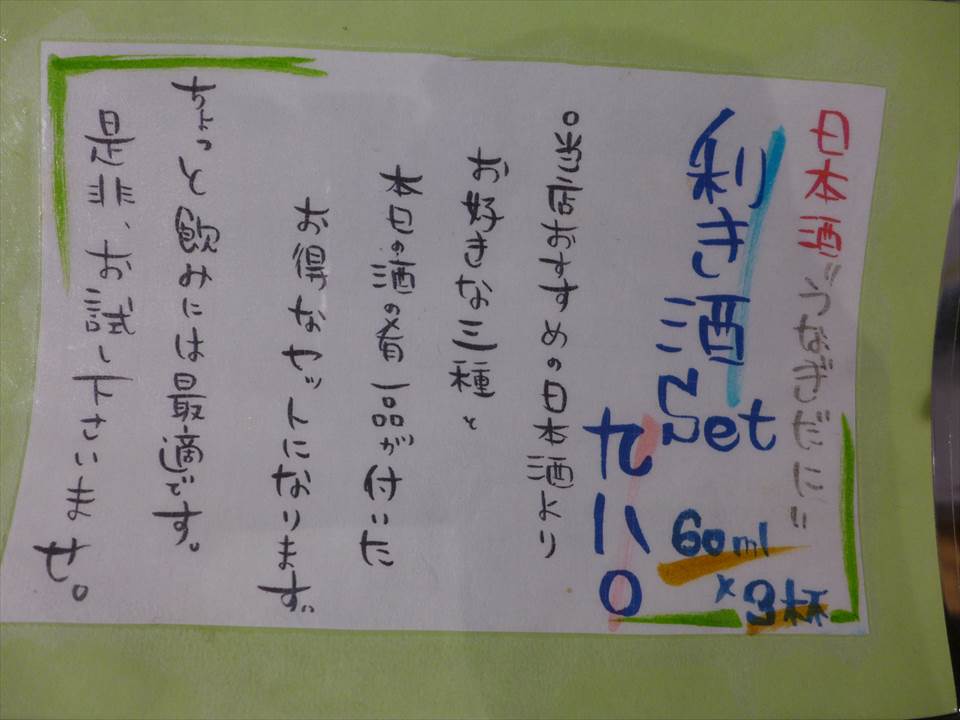 日本酒〝うなぎだに〟
利き酒Set
60ml
×3杯
九八〇
○当店おすすめの日本酒より
お好きな三種と
本日の酒の肴一品が付いた
お得なセットになります。
ちょっと飲みには最適です。
是非、お試し下さいませ。